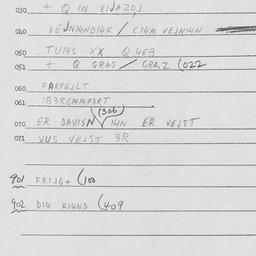 030 + Q IN VIJAZOJ
040 VEJNI4NDI4K / CI4M VEJNI4N
050 .TUI4S XX Q 4EB
051 + Q GRAS / GRA.Z (022
060 FARFEJLT
061 1B3RGNI4P3RT
(306)
070 ER DAVISN I4N ER VEJST
071 VUS VEJST 3R
901 FRIJG+ (100
902 DI4 KI4ND (409